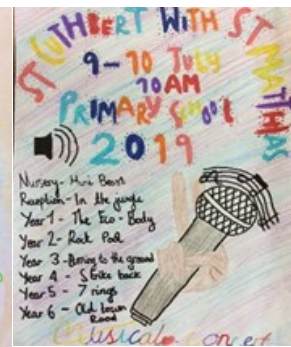 ST CUTHBERT WITH ST MATTHIAS
9-10 July
10AM
PRIMARY SCHOOL
2019
Nursery - Mini Beast
Reception - In the jungle
Year 1 - The Eco - Body
Year 2 - Rock Pool
Year 3 - Burning to the ground
Year 4 - Strike back
Year 5 - 7 rings
Year 6 - Old town Road
Musical concert